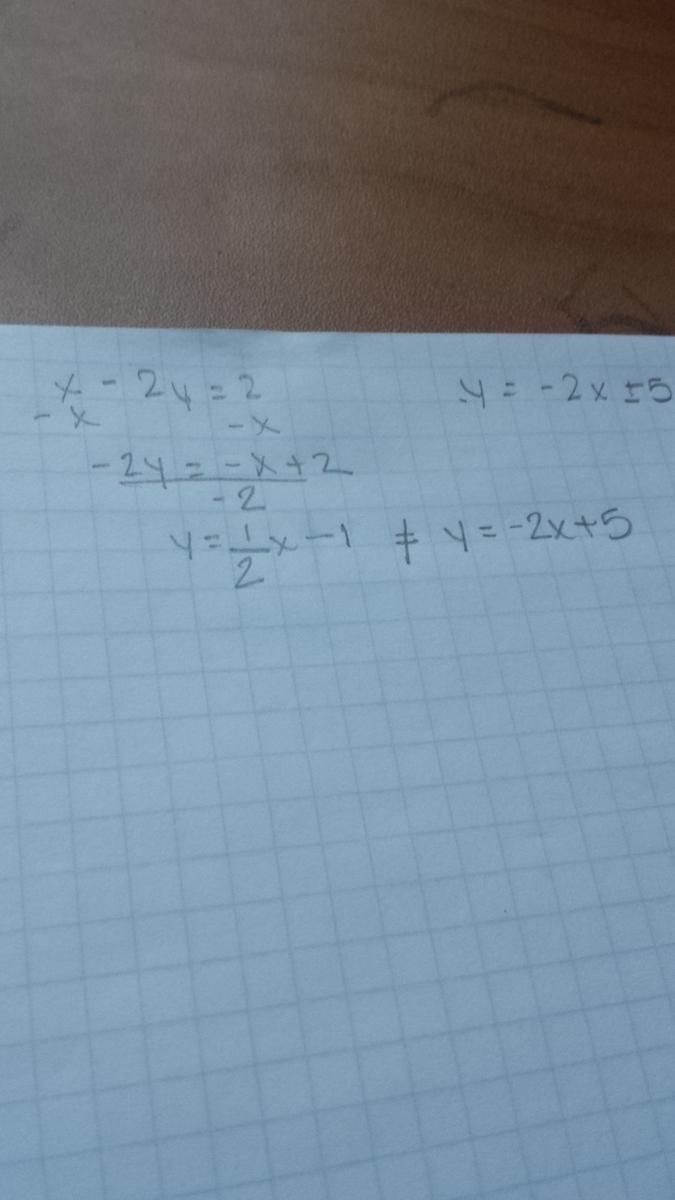 x - 2y = 2 y = -2x ± 5
- x - x
-2y = -x + 2
-2
y = 1/2 x - 1 ≠ y = -2x + 5